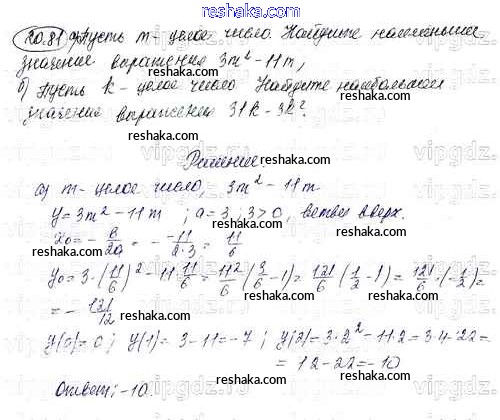 20.81 а) Пусть m - целое число. Найдите наименьшее
значение выражения 3m² - 11m;
б) Пусть k - целое число. Найдите наибольшее
значение выражения 31k - 3k².
Решение
а) m - целое число, 3m² - 11m
y = 3m² - 11m ; a = 3; 3 > 0, ветви вверх.
x₀ = - в/2a = - -11/2·3 = 11/6
y₀ = 3·(11/6)² - 11·11/6 = 11²/6 (3/6 - 1) = 121/6 (1/2 - 1) = 121/6 · (-1/2) =
= - 121/12
y(0) = 0; y(1) = 3 - 11 = -7 ; y(2) = 3·2² - 11·2 = 3·4 - 22 =
= 12 - 22 = -10
Ответ: -10.
reshaka.com
vipgdz.com